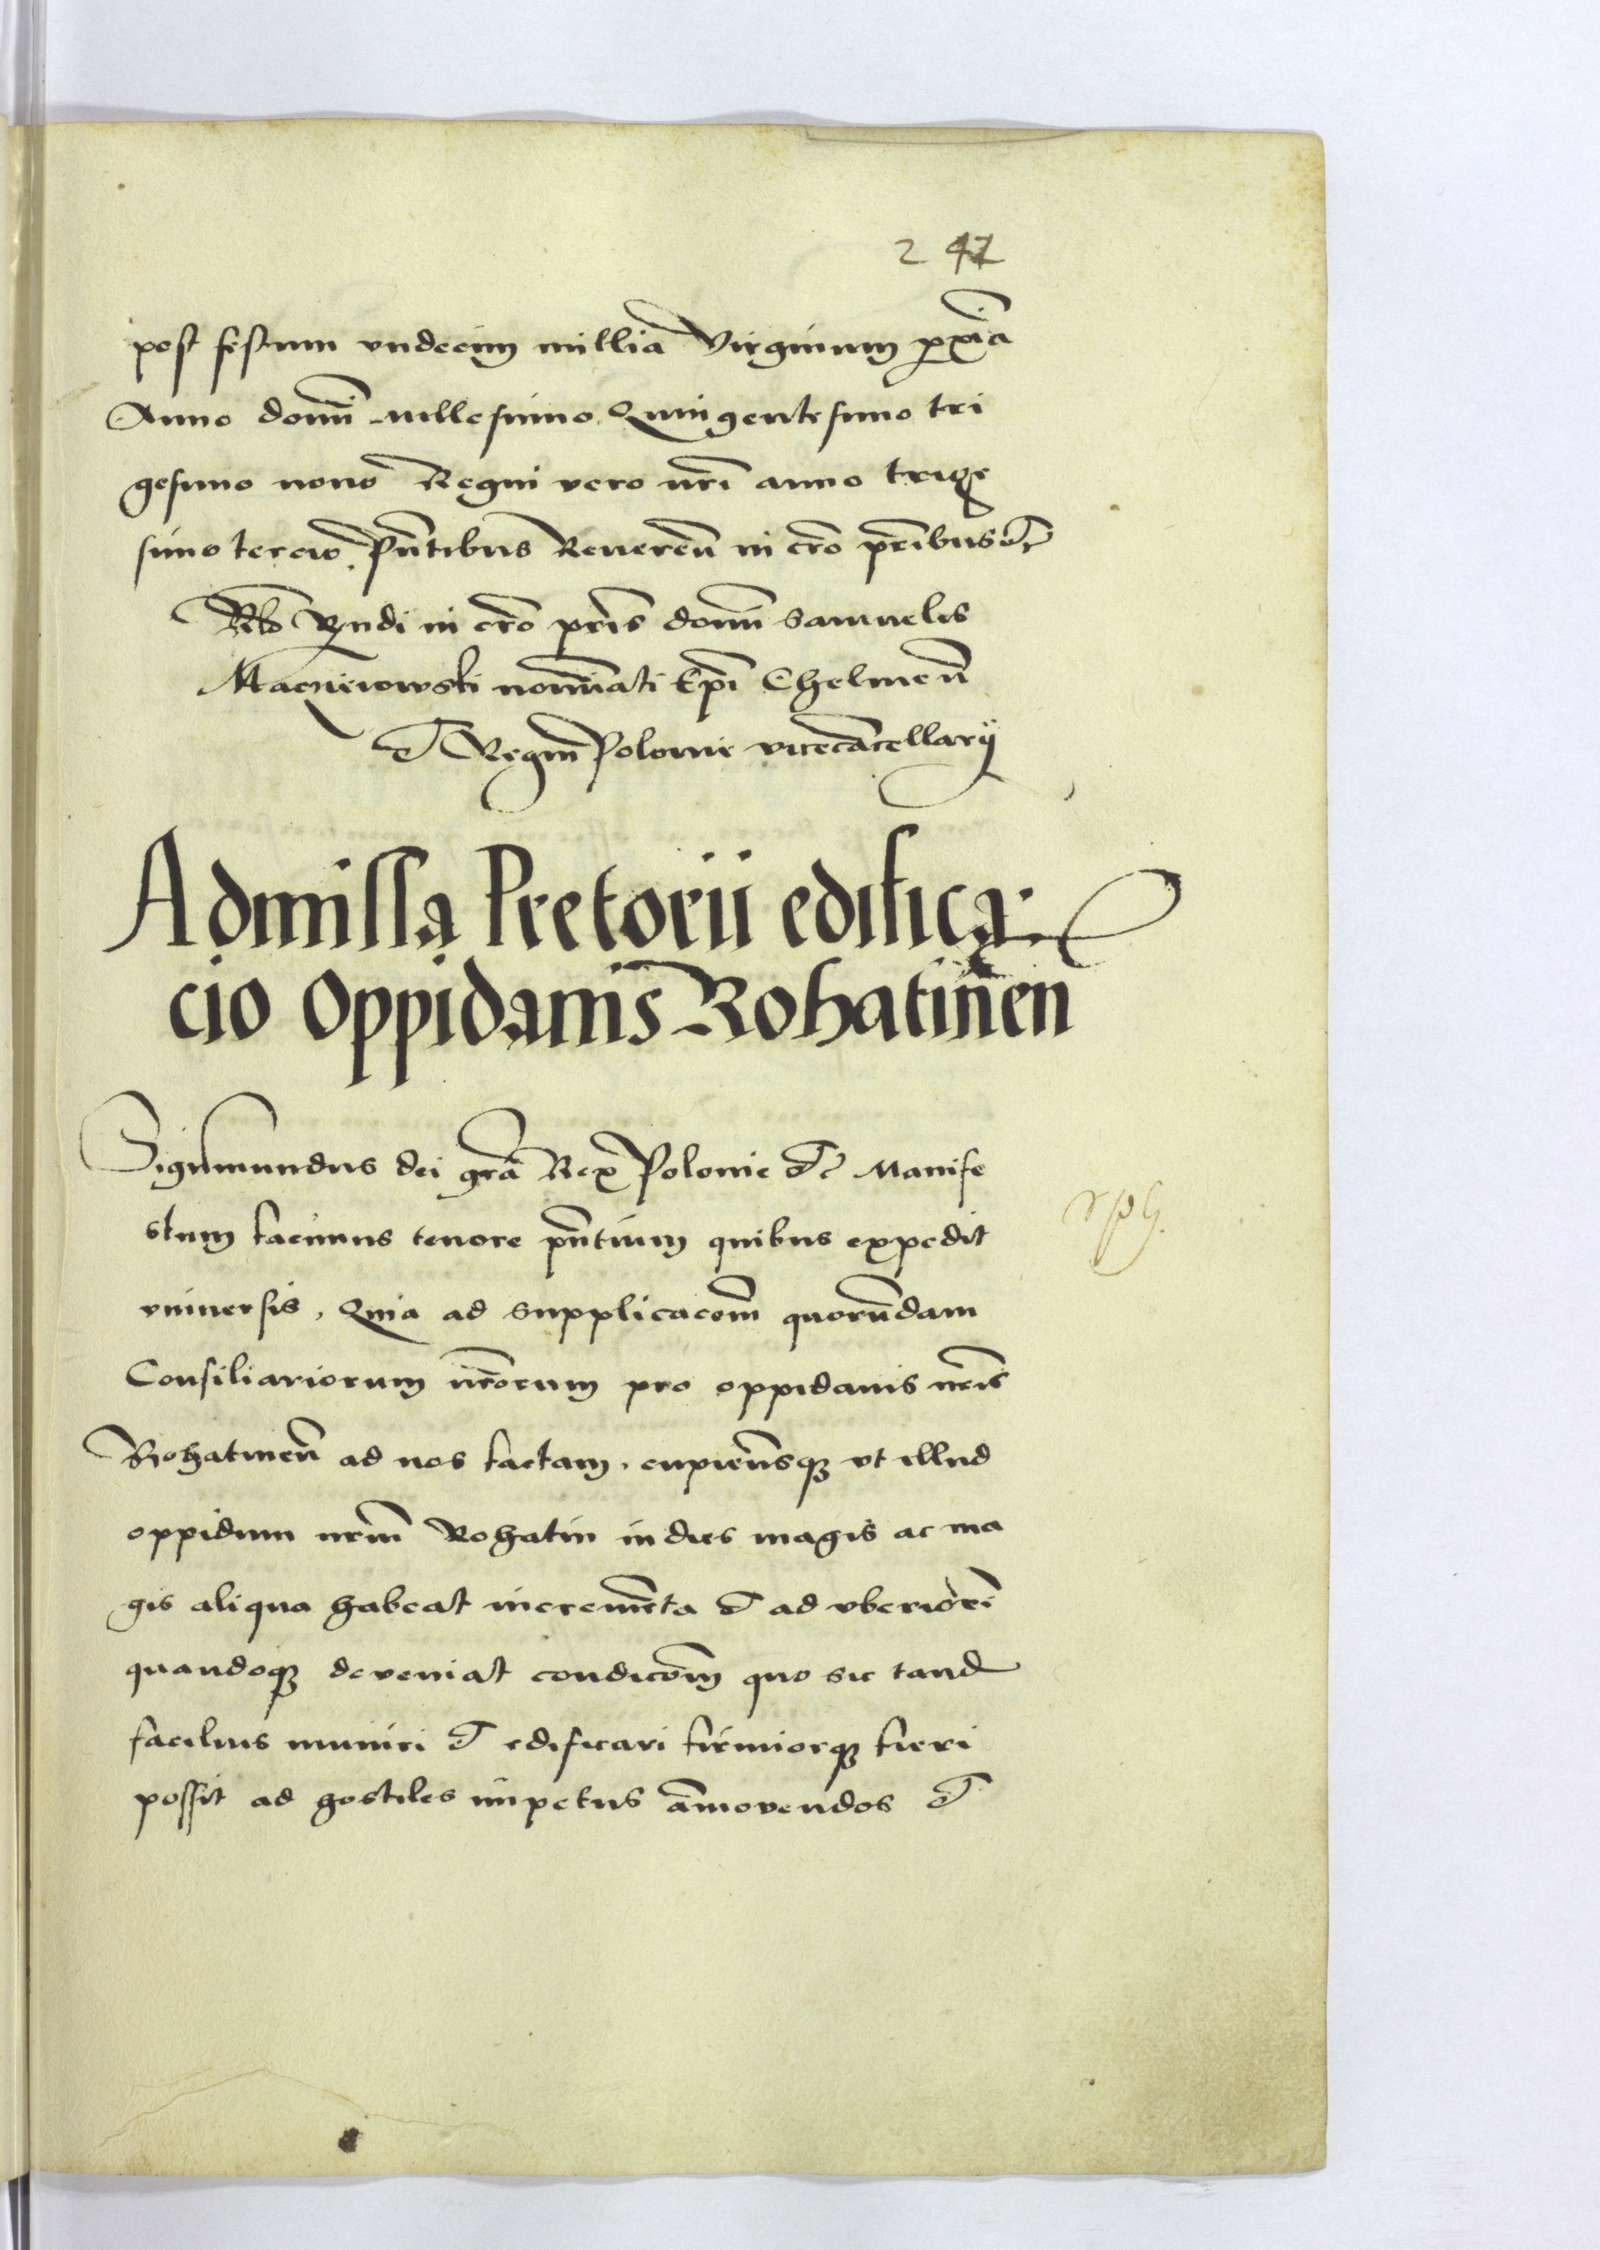 247
post festum vndecim millia Virginum pxia
Anno domi millesimo Quingentesimo tri
gesimo nono Regni vero nri anno trige
simo tercio. Pntibus Reueren in cro pribus etc
Rlo Rndi in cro pris domi Samuelis
Macziewski nominati Epi Chelmen
et Regni Polonie vicecacellarij
Admissa Pretorii edifica
cio oppidanis Rohatinen
Sigismundus dei gra Rex Polonie etc Manife
stum facimus tenore pntium quibus expedit
vniuersis, Quia ad supplicacom quorundam
Consiliariorum nrorum pro oppidanis nris
Rohatinen ad nos factam, cupiensq vt illud
oppidum nrm Rohatin in dies magis ac ma
gis aliqua habeat incrementa et ad vberiori
quandoq deveniat condicom quo sic tand
facilius muniri et edificari firmiorq fieri
possit ad hostiles impetus amovendos et